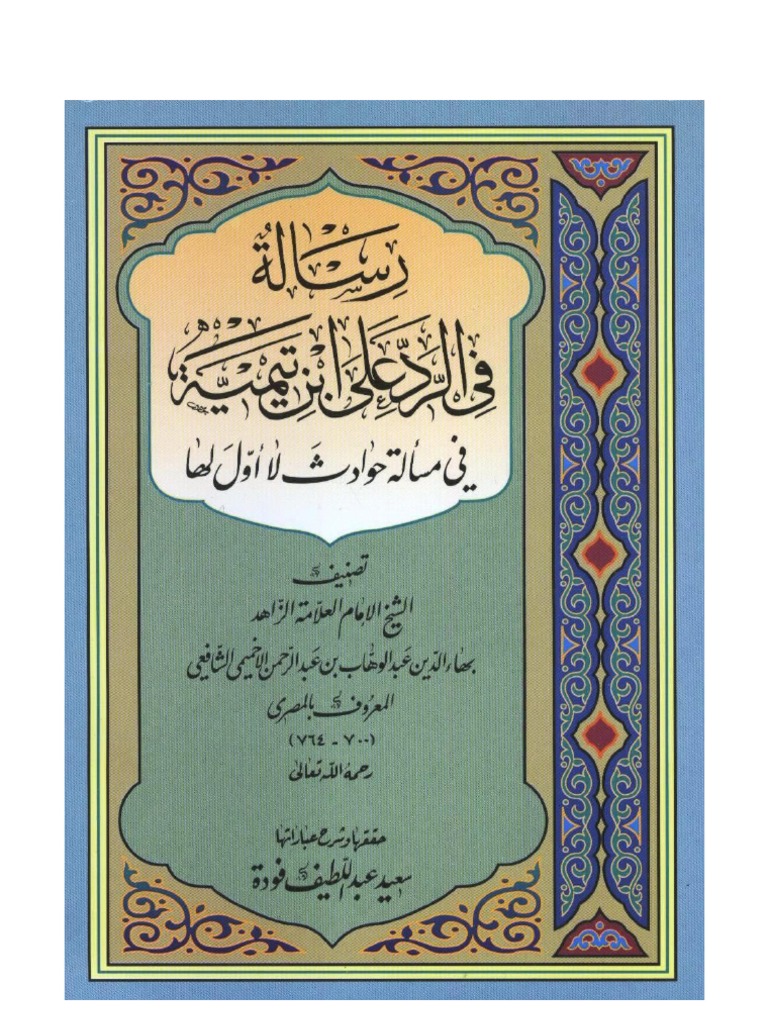 رِسَالَةٌ
فِي الرَّدِّ عَلَى ابْنِ تَيْمِيَّةَ
في مسألة حوادثَ لا أوّلَ لها
تصنيف
الشيخ الإمام العلّامة الزّاهد
بهاء الدّين عبد الوهّاب بن عبد الرّحمن الإخميمي الشافعي
المعروف بالمصري
(٧٠٠ - ٧٦٤)
رحمهُ اللّه تعالىٰ
حققها وشرح عباراتها
سعيد عبد اللّطيف فودة